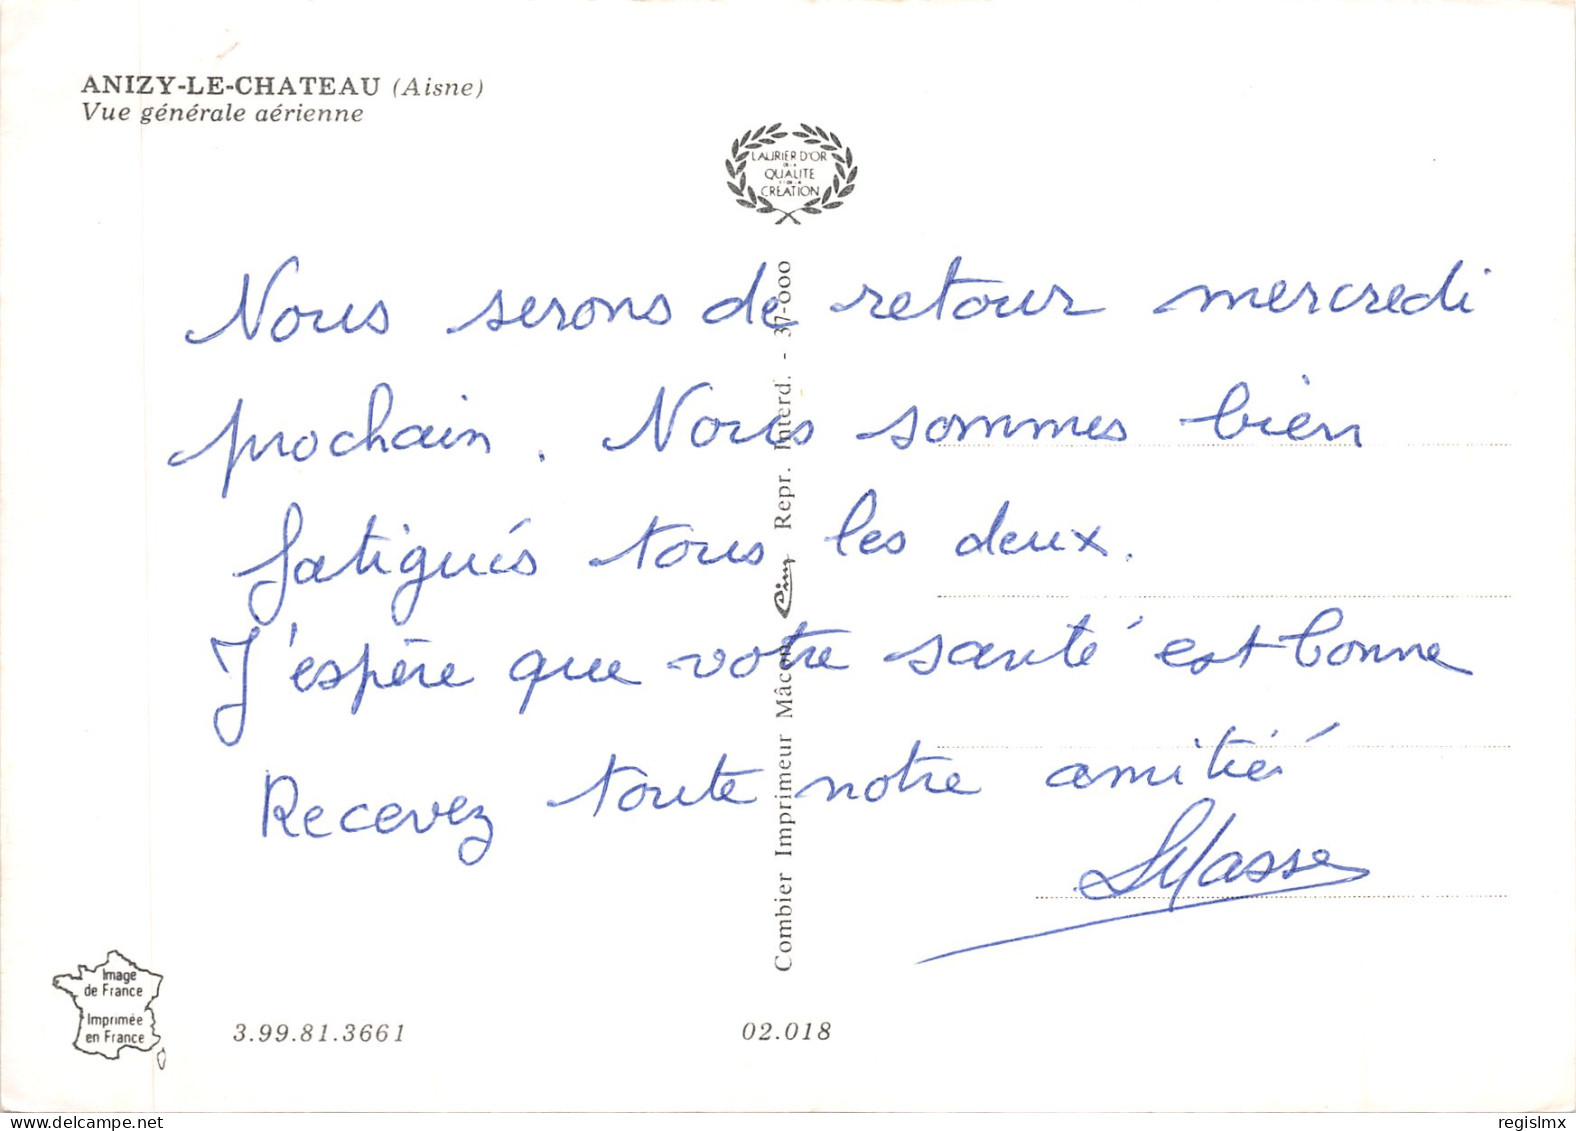 ANIZY-LE-CHATEAU (Aisne)
Vue générale aérienne
LAURIER D'OR
DE LA
QUALITE
ET DE LA
CRÉATION
Nous serons de retour mercredi
prochain. Nous sommes bien
fatigués tous les deux.
J'espère que votre santé est bonne
Recevez toute notre amitié
Masse
Combier Imprimeur Mâcon Cim Repr. Interd. - 37-000
Image
de France
Imprimée
en France
3.99.81.3661
02.018
regislmx